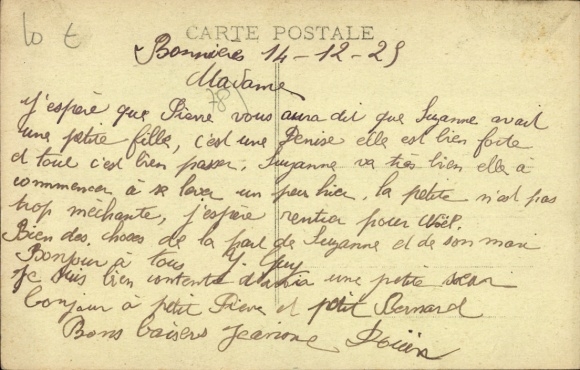 10 €
CARTE POSTALE
Bonnières 14-12-29
Madame
78
J'espère que Pierre vous aura dit que Suzanne avait
une petite fille, c'est une Denise elle est bien forte
et tout c'est bien passer. Suzanne va très bien elle à
commencer à se lever un peu hier. la petite n'est pas
trop méchante, j'espère rentrer pour Noël.
Bien des choses de la part de Suzanne et de son mari
Bonjour à tous
Je suis bien contente d'avoir une petite sœur
bonjour à petit Pierre et petit Bernard
Bons baisers Jeanne